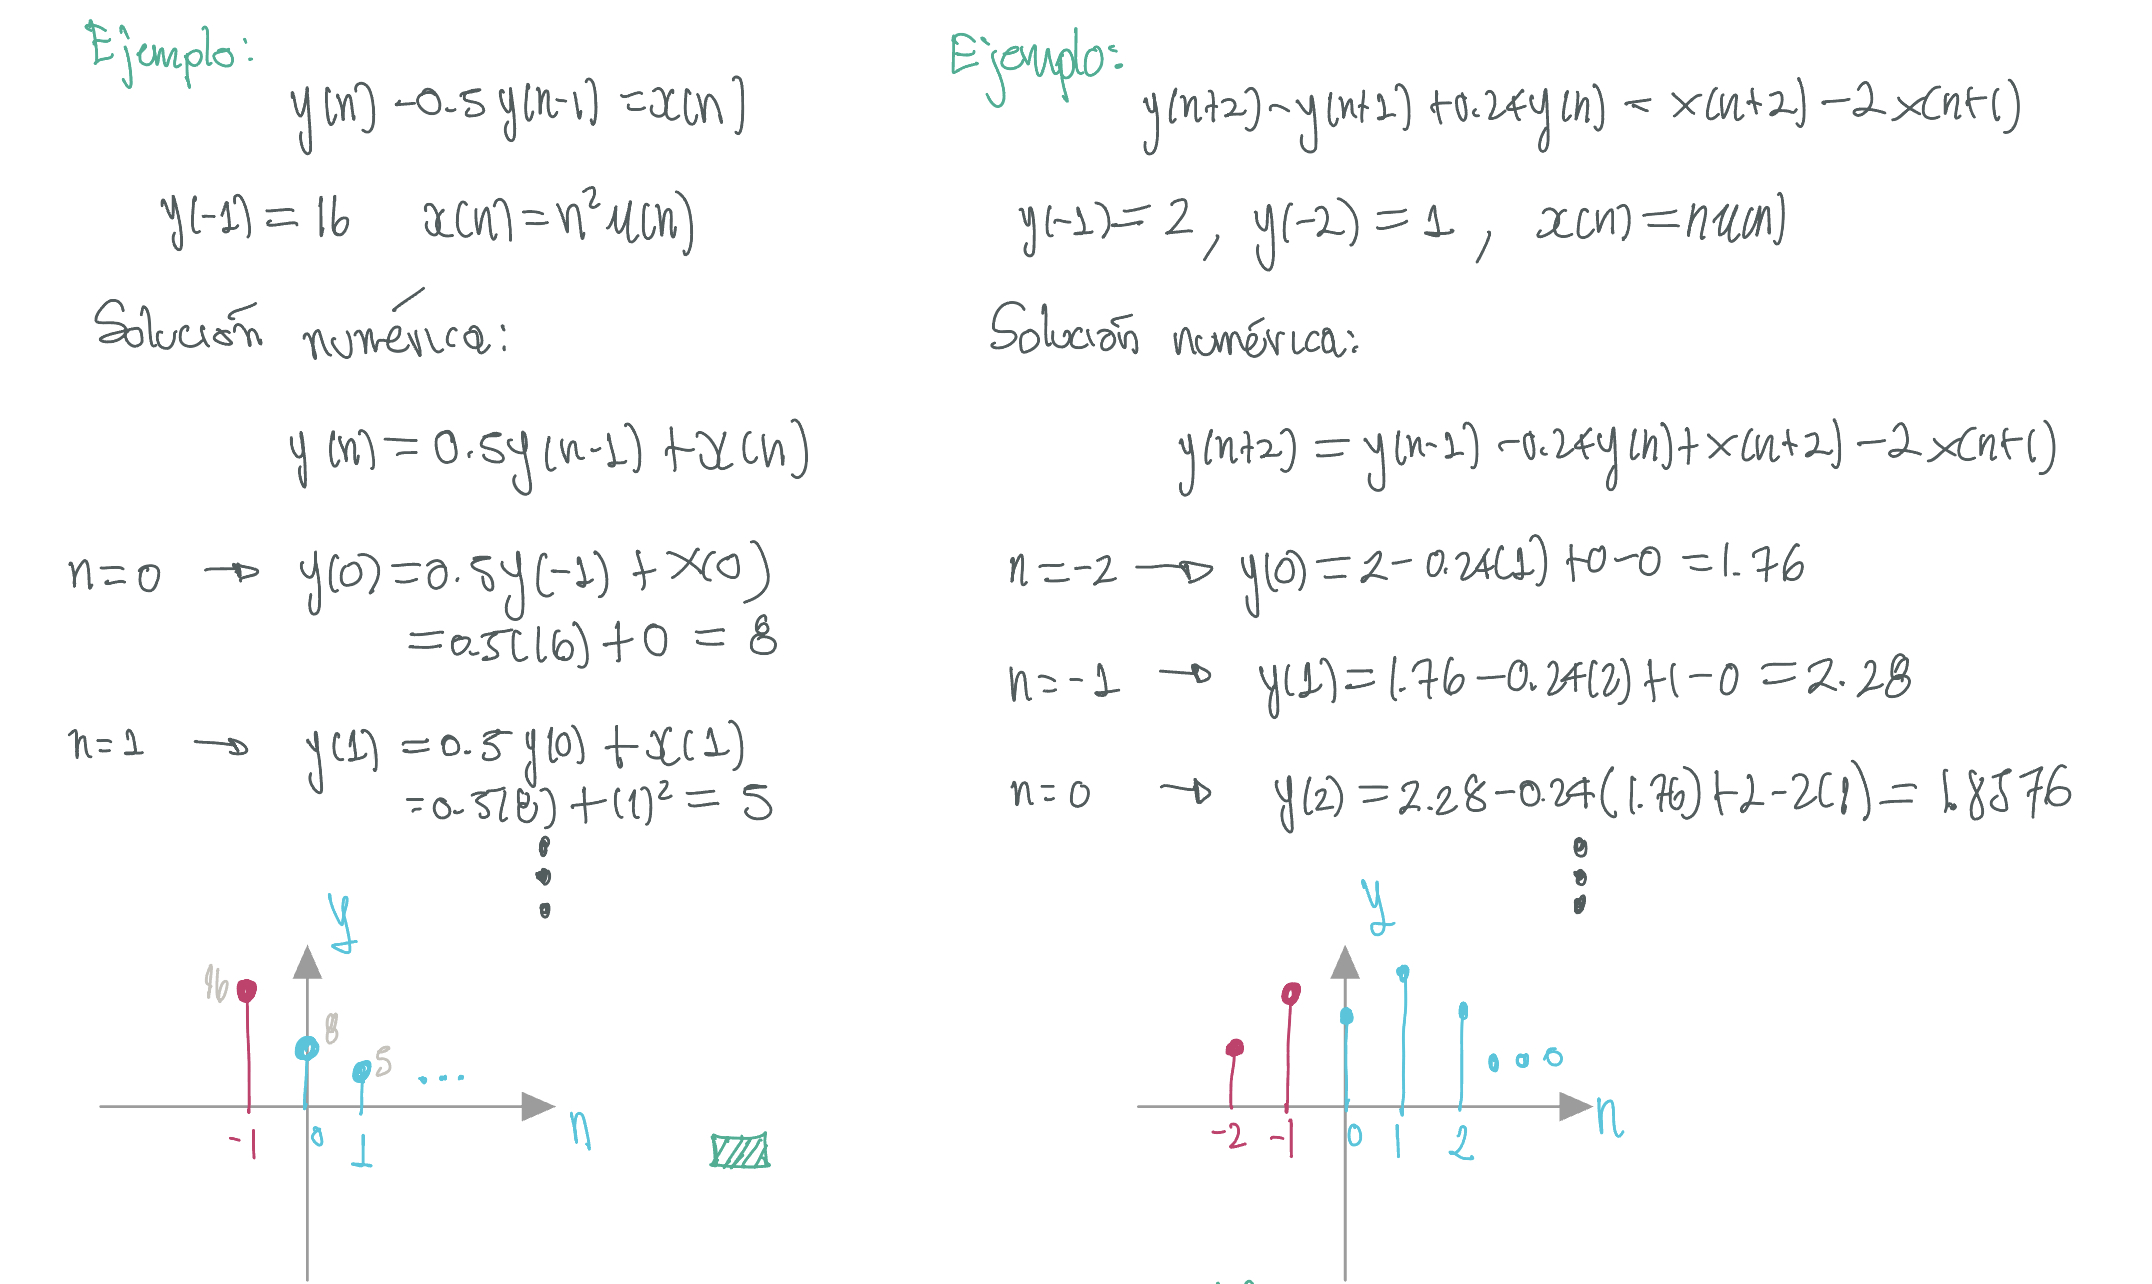 Ejemplo:
y(n) -0.5y(n-1) =x(n)
y(-1) = 16 x(n)=n²u(n)
Solución numérica:
y(n)=0.5y(n-1) +x(n)
n=0 → y(0)=0.5y(-1) + x(0)
=0.5(16) + 0 = 8
n=1 → y(1) =0.5y(0) +x(1)
=0.5(8) +(1)² = 5
y
16
8
5
...
n
-1 0 1
Ejemplo:
y(n+2)-y(n+1) +0.24y(n) = x(n+2) -2x(n+1)
y(-1)= 2, y(-2) = 1, x(n)=nu(n)
Solución numérica:
y(n+2) = y(n-1) -0.24y(n)+x(n+2) -2x(n+1)
n=-2 → y(0) =2-0.24(1) +0-0 =1.76
n=-1 → y(1)=1.76-0.24(2)+1-0 =2.28
n=0 → y(2) =2.28-0.24(1.76)+2-2(1)= 1.8576
y
...
n
-2 -1 0 1 2